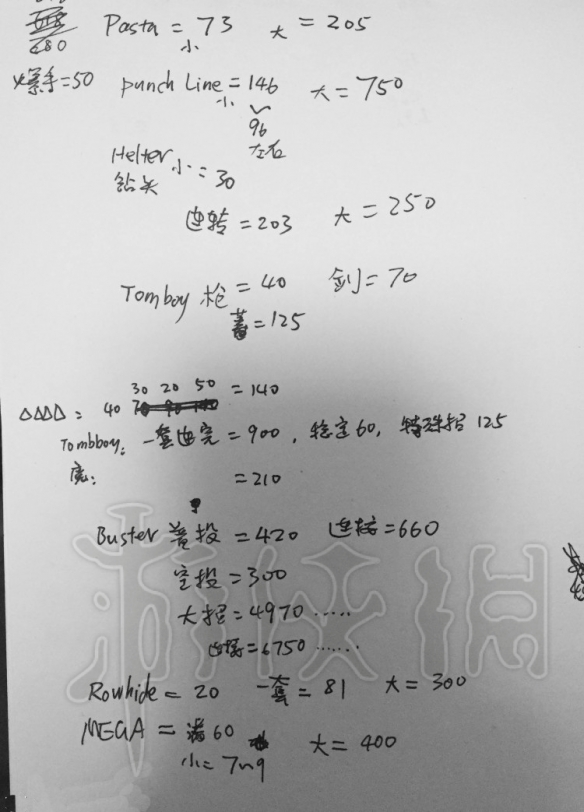 680
爆手=50 Pasta = 73 大 = 205
小
punch Line = 146 大 = 750
小 96
左右
Helter 小 = 30
钻头
连转 = 203 大 = 250
Tomboy 枪 = 40 剑 = 70
蓄 = 125
30 20 50 = 140
△△△△: 40
Tombboy: 一套连完 = 900, 稳定60, 特殊招 125
= 210
Buster 蓄投 = 420 连接 = 660
空投 = 300
大招 = 4970 .....
连接 = 6750 ......
Rowhide = 20 一套 = 81 大 = 300
MEGA = 满 60 大 = 400
小 = 7~9
游侠网